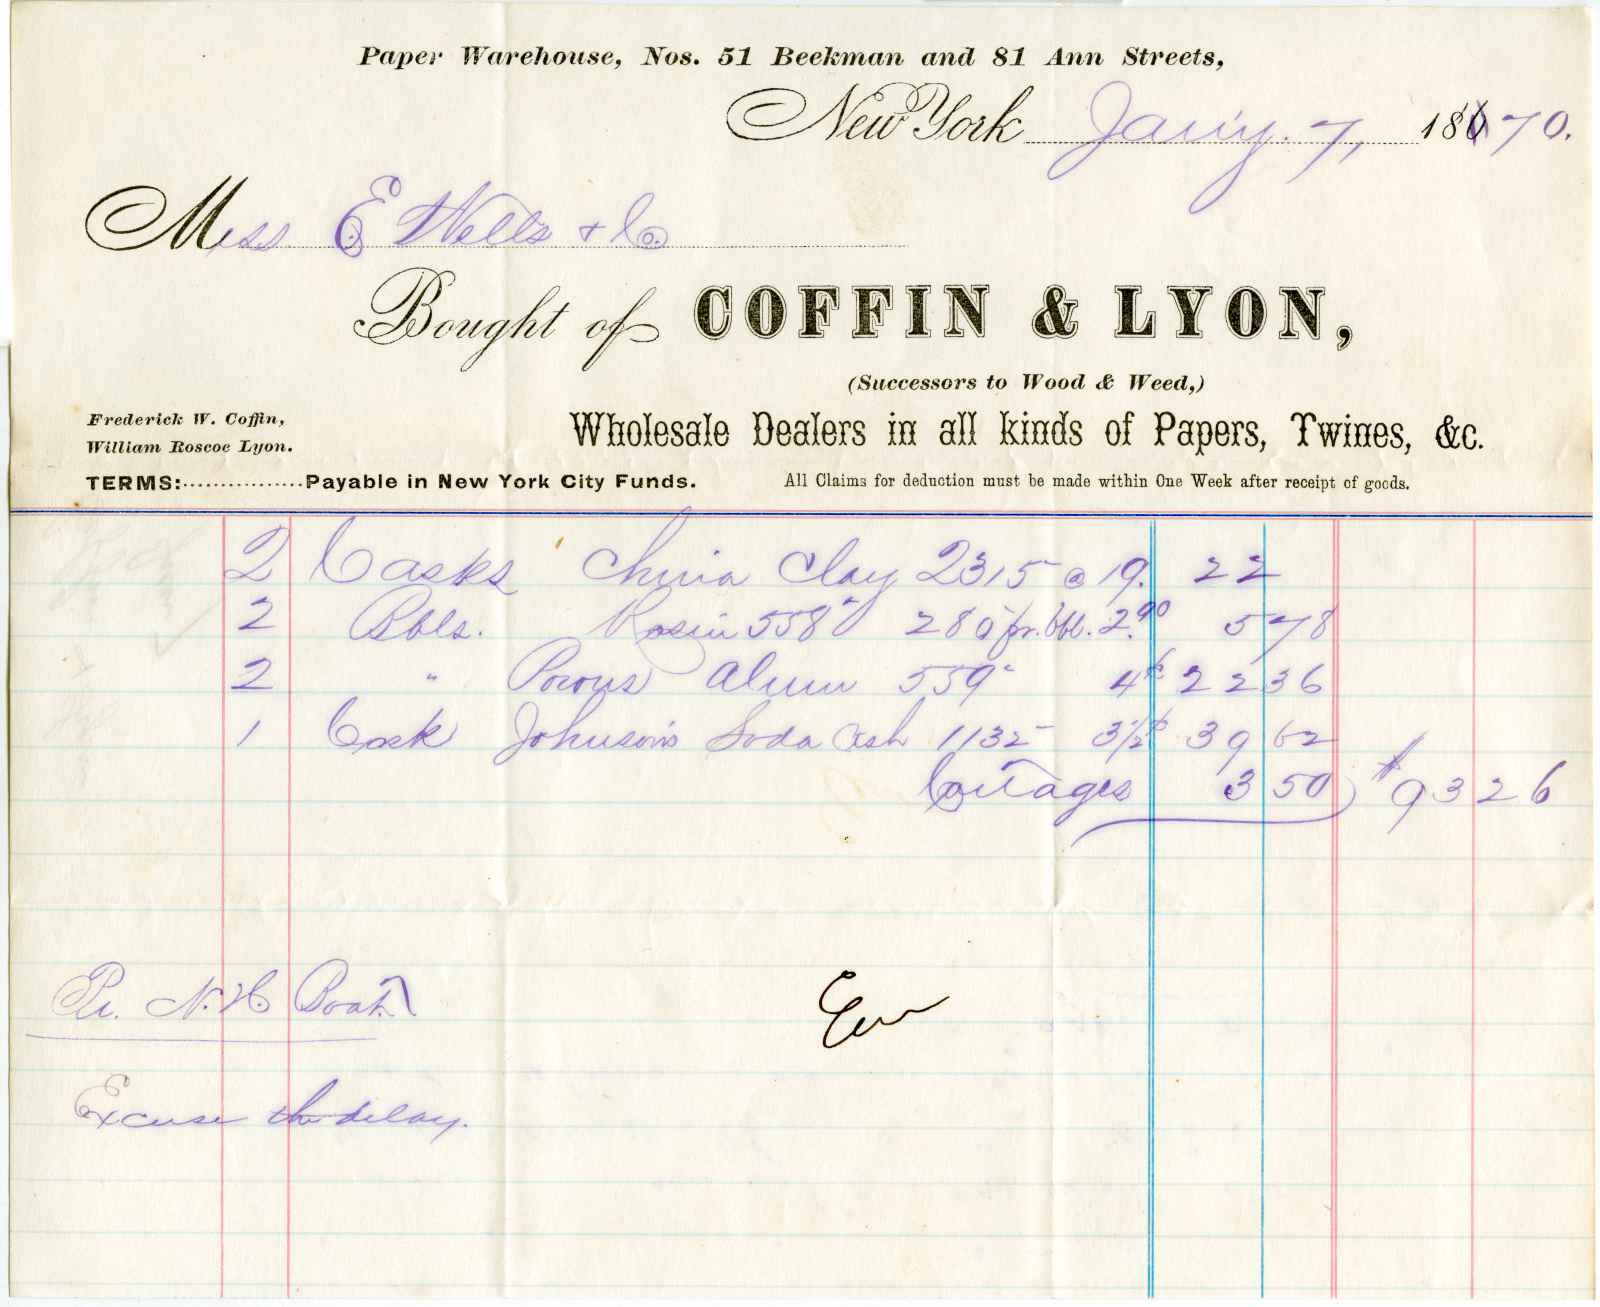 Paper Warehouse, Nos. 51 Beekman and 81 Ann Streets,
New York Jan'y. 7, 1870.
Mess E Wells & Co.
Bought of COFFIN & LYON,
(Successors to Wood & Weed,)
Frederick W. Coffin,
William Roscoe Lyon.
Wholesale Dealers in all kinds of Papers, Twines, &c.
TERMS:................Payable in New York City Funds.
All Claims for deduction must be made within One Week after receipt of goods.
2 Casks China Clay 2315 @ 19. 22
2 Bbls. Rosin 558 280 pr. bbl. 2.90 5 78
2 " Porous Alum 559 4¢ 22 36
1 Cask Johnson's Soda Ash 1132 3 1/2¢ 39 62
Cartages 3 50 $93 26
Per. N. H Boat
Excuse the delay.